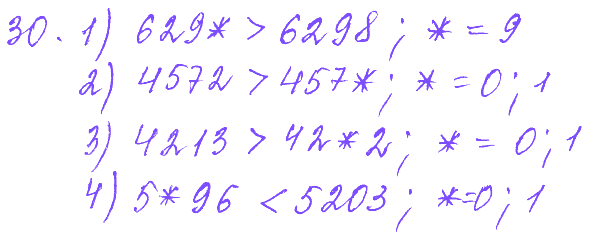 30. 1) 629* > 6298; * = 9
2) 4572 > 457*; * = 0; 1
3) 4213 > 42*2; * = 0; 1
4) 5*96 < 5203; *=0; 1